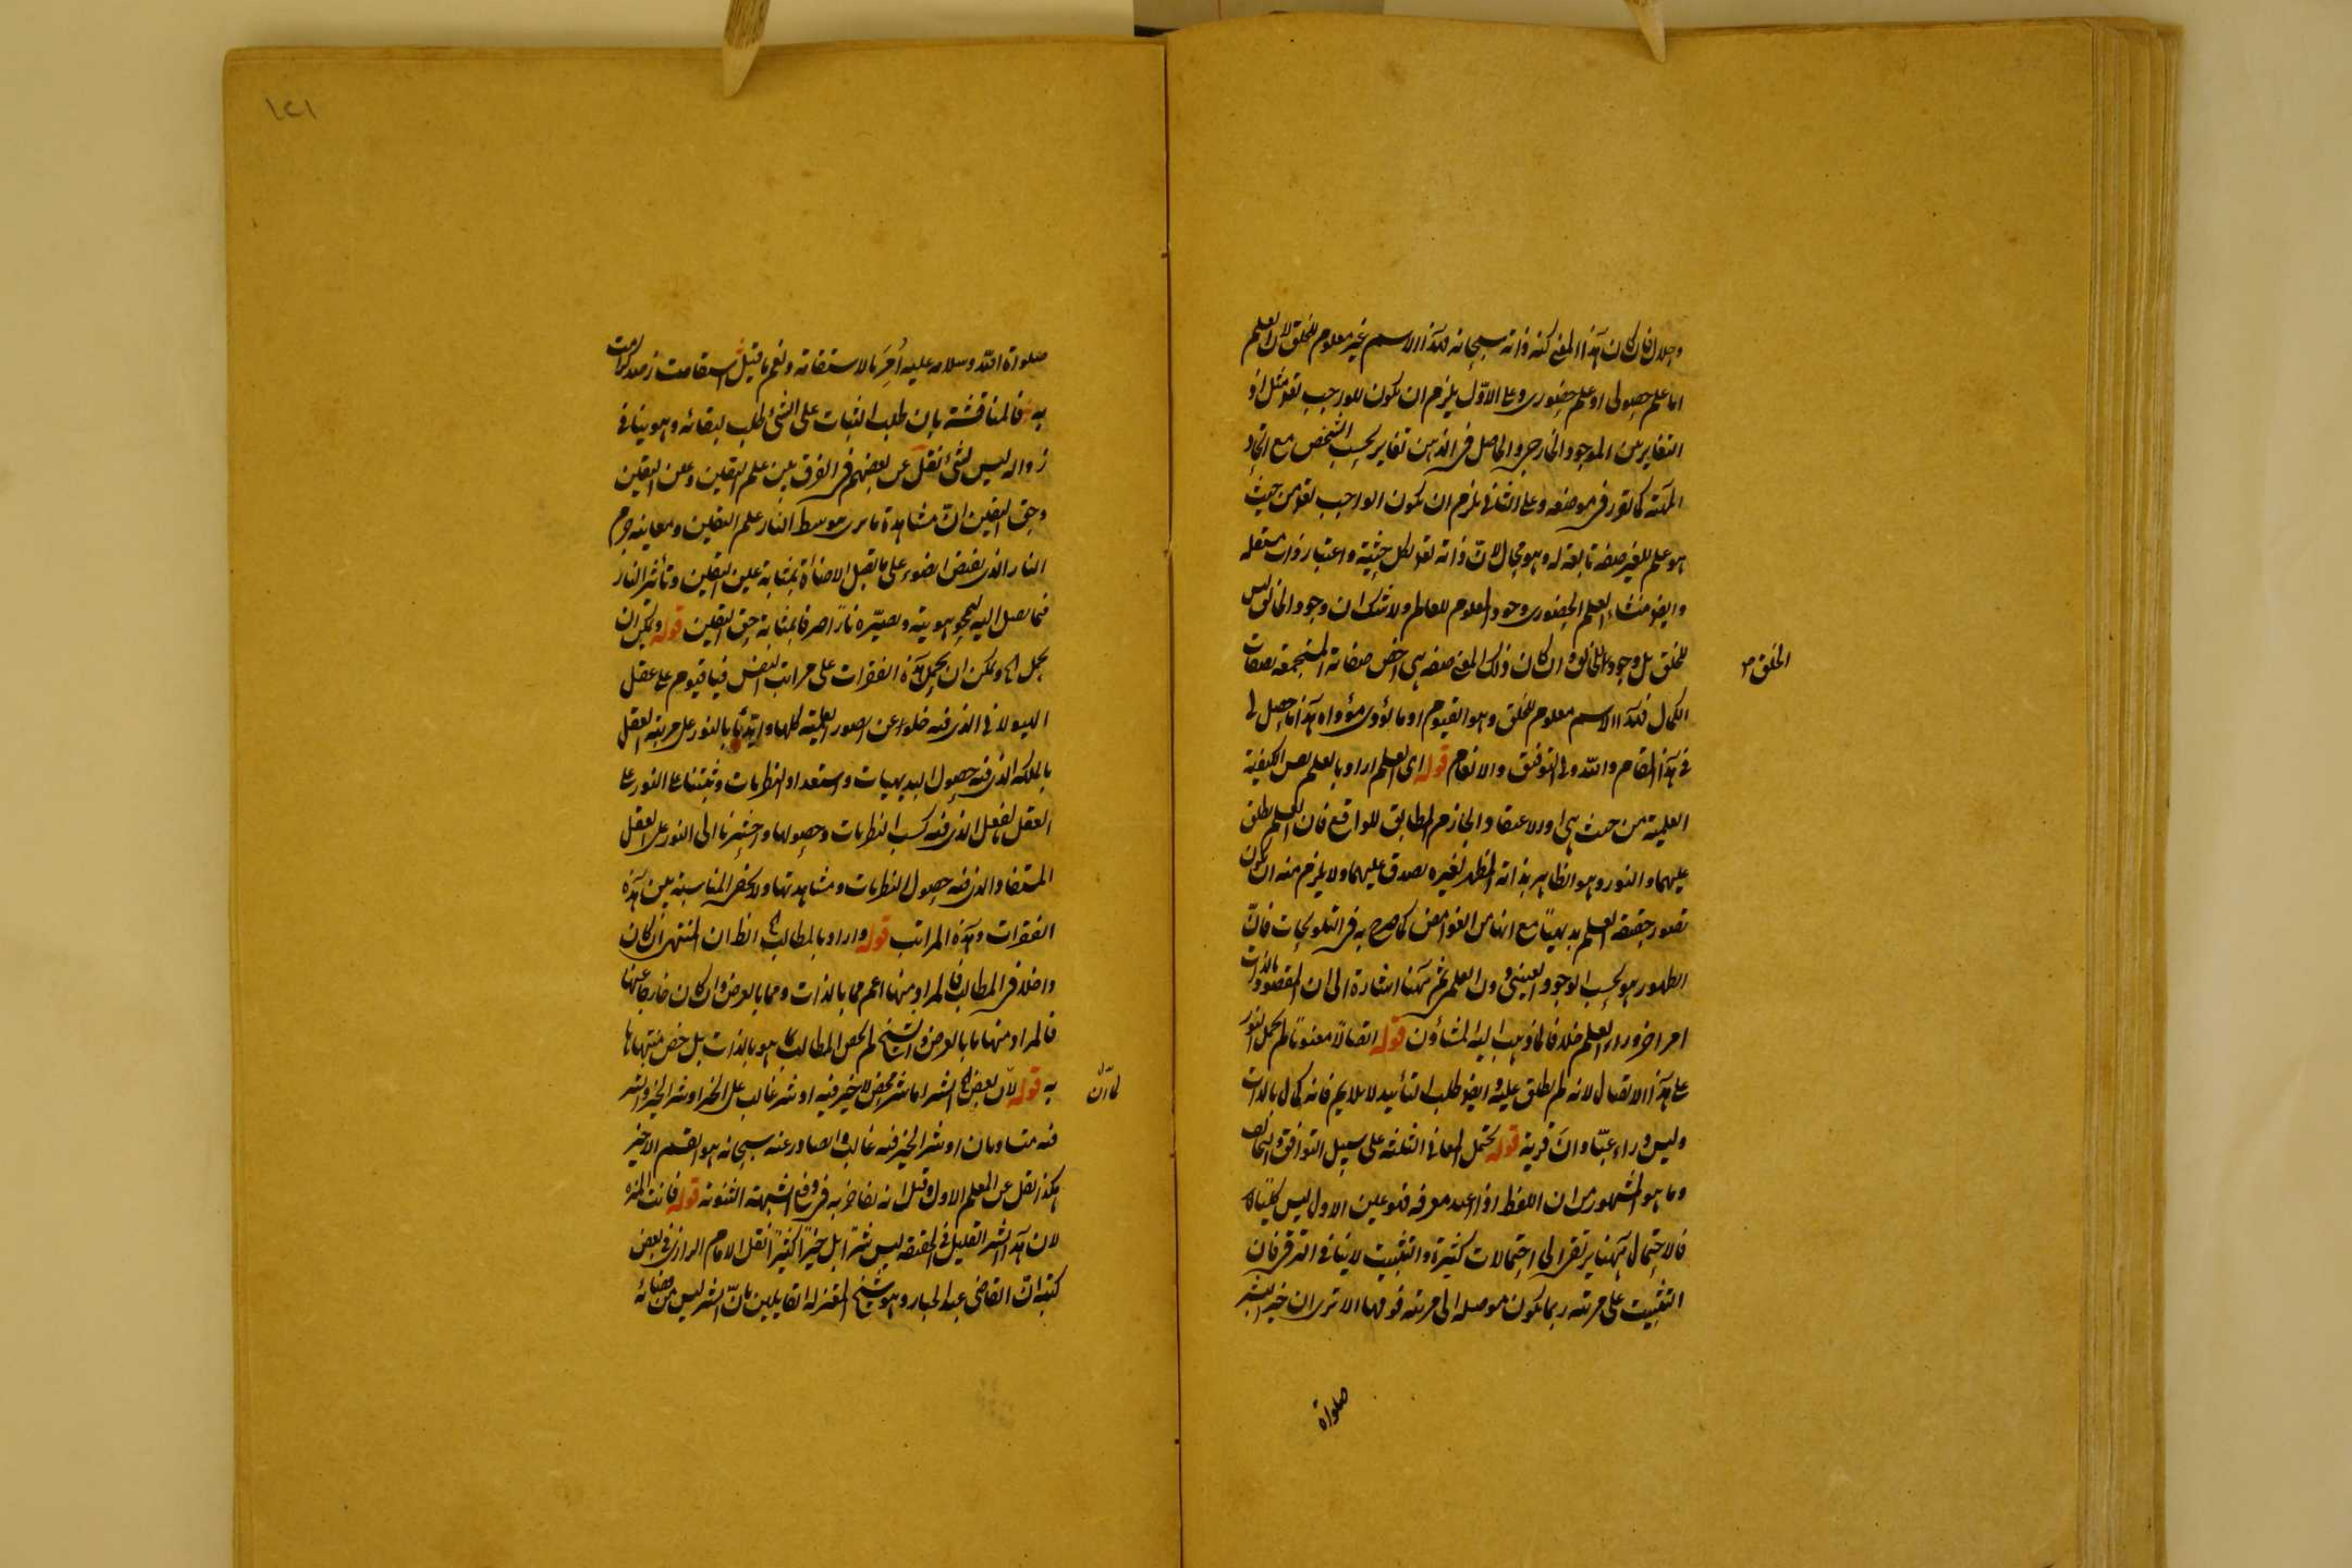 وجلال فان كان هذا المعنى كنه ذاته سبحانه فهذا الاسم غير معلوم للخلق لان العلم
اما علم حصولى او علم حضورى وعلى الاوّل يلزم ان يكون للواجب تعالى مثل اذ
التغاير بين الموجود الخارجى والحاصل فى الذهن تغاير بحسب التشخص مع اتحاد
المهيّة كما تقرر فى موضعه وعلى الثانى يلزم ان يكون الواجب تعالى من حيث
هو علم للغير صفة تابعة له وهو محال لانّ ذاته تعالى لكل حيثية واعتبار ذات مستقله
وايضا منشاء العلم الحضورى وجود المعلوم للعالم ولا شك ان وجود الخالق ليس
للخلق بل وجود للخالق وان كان ذلك المعنى صفة هى اخص صفاته المستجمعة لصفات
الخلق
الكمال فهذا الاسم معلوم للخلق وهو القيوم او ما يؤدى مؤداه هذا ما حصل لى
فى هذا المقام والله ولى التوفيق والانعام قوله اى العلم اراد بالعلم نفس الكيفية
العلمية من حيث هى او الاعتقاد الجازم المطابق للواقع فان العلم يطلق
عليهما والنور وهو الظاهر بذاته المظهر لغيره يصدق عليهما ولا يلزم منه ان يكون
تصور حقيقة العلم بديهيّا مع انها من الغوامض كما صرح به فى التلويحات فانّ
الظهور هو بحسب الوجود العينى دون العلم ثم ههنا اشارة الى ان المقصود بالذات
امر اخر وراء العلم خلافا لما ذهب اليه المشاؤن قوله اتصالاً معنويّا لم يحمل النور
على هذا الاتصال لانه لم يطلق عليه وايضا طلب التأييد لا يلايم فانه كمال بالذات
وليس وراء عبّادان قرية قوله يحتمل المعانى الثلثة على سبيل التوافق والتخالف
وما هو المشهور من ان اللفظ اذا اعيد معرفة فهو عين الاول ليس كليّا
فالاحتمال ههنا يرتقى الى احتمالات كثيرة والتثبيت لا ينافى الترقى فان
التثبيت على مرتبة ربما يكون موصله الى مرتبة فوقها الا ترى ان خير البشر
صلواة
١٤١
صلواة الله وسلامه عليه اُمِرَ بالاستقامة ونعم ما قيل استقامت ز صد كرامت
به فالمناقشة بان طلب الثبات على الشئ طلب لبقائه وهو ينافى
زواله ليس بشئ نقل عن بعضهم فى الفرق بين علم اليقين وعين اليقين
وحق اليقين انّ مشاهدة ما يرى بتوسط النار علم اليقين ومعاينة جرم
النار الذى يفيض الضوء على ما يقبل الاضاءة بمثابة عين اليقين وتأثير النار
فيما يصل اليه ليمحو هويته ويصيّره ناراً صرفا بمثابة حق اليقين قوله ويمكن ان
يحمل اه ويمكن ان يحمل هذه الفقرات على مراتب النفس فيا قيوم على عقل
الهيولانى الذى فيه خلوه عن الصور العلمية كلها وايّدنا بالنور على مرتبة العقل
بالملكة الذى فيه حصول البديهيات واستعداد النظريات وثبتنا على النور على
العقل بالفعل الذى فيه كسب النظريات وحصولها واحشرنا الى النور على العقل
المستفاد الذى فيه حصول النظريات ومشاهدتها ولا يخفى المناسبة بين هذه
الفقرات وهذه المراتب قوله واراد بالمطالب اه الظ ان المنتهى ان كان
داخلا فى المطالب فالمراد منها اعم مما بالذات ومما بالعرض وان كان خارجا عنها
فالمراد منها ما بالعرض والشيخ لم يخص المطالب بما هو بالذات بل خص منتهاها
به قوله لانّ بعض اه الشر اما شر محض لا خير فيه او شر غالب على الخير او شر الخير والشر
لانّ
فيه متساويان او شر الخير فيه غالب والصادر عنه سبحانه هو القسم الاخير
هكذا نقل عن المعلم الاول وقيل انه تفاخر به فى دفع الشبهة الثنوية قوله فانت المنزه
لان هذا الشر القليل فى الحقيقة ليس شرا بل خيرا كثيراً نقل الامام الرازى فى بعض
كتبه انّ القاضى عبد الجبار وهو شيخ المعتزلة القايلين بانّ الشر ليس من قضائه